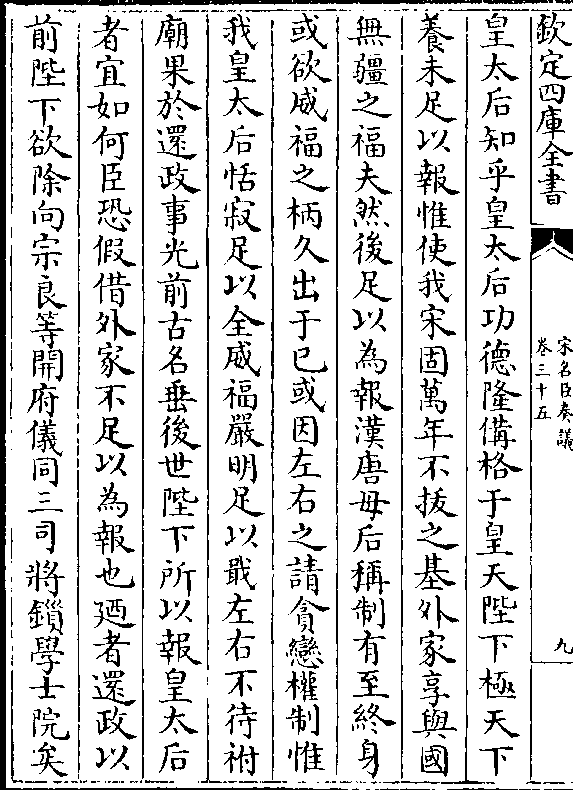 欽定四庫全書
宋名臣奏議
卷三十五
九
皇太后知乎皇太后功德隆備格于皇天陛下極天下
養未足以報惟使我宋固萬年不拔之基外家享與國
無疆之福夫然後足以為報漢唐母后稱制有至終身
或欲威福之柄久出于已或因左右之請貪戀權制惟
我皇太后恬寂足以全威福嚴明足以戢左右不待祔
廟果於還政事光前古名垂後世陛下所以報皇太后
者宜如何臣恐假借外家不足以為報也廼者還政以
前陛下欲除向宗良等開府儀同三司將鎖學士院矣